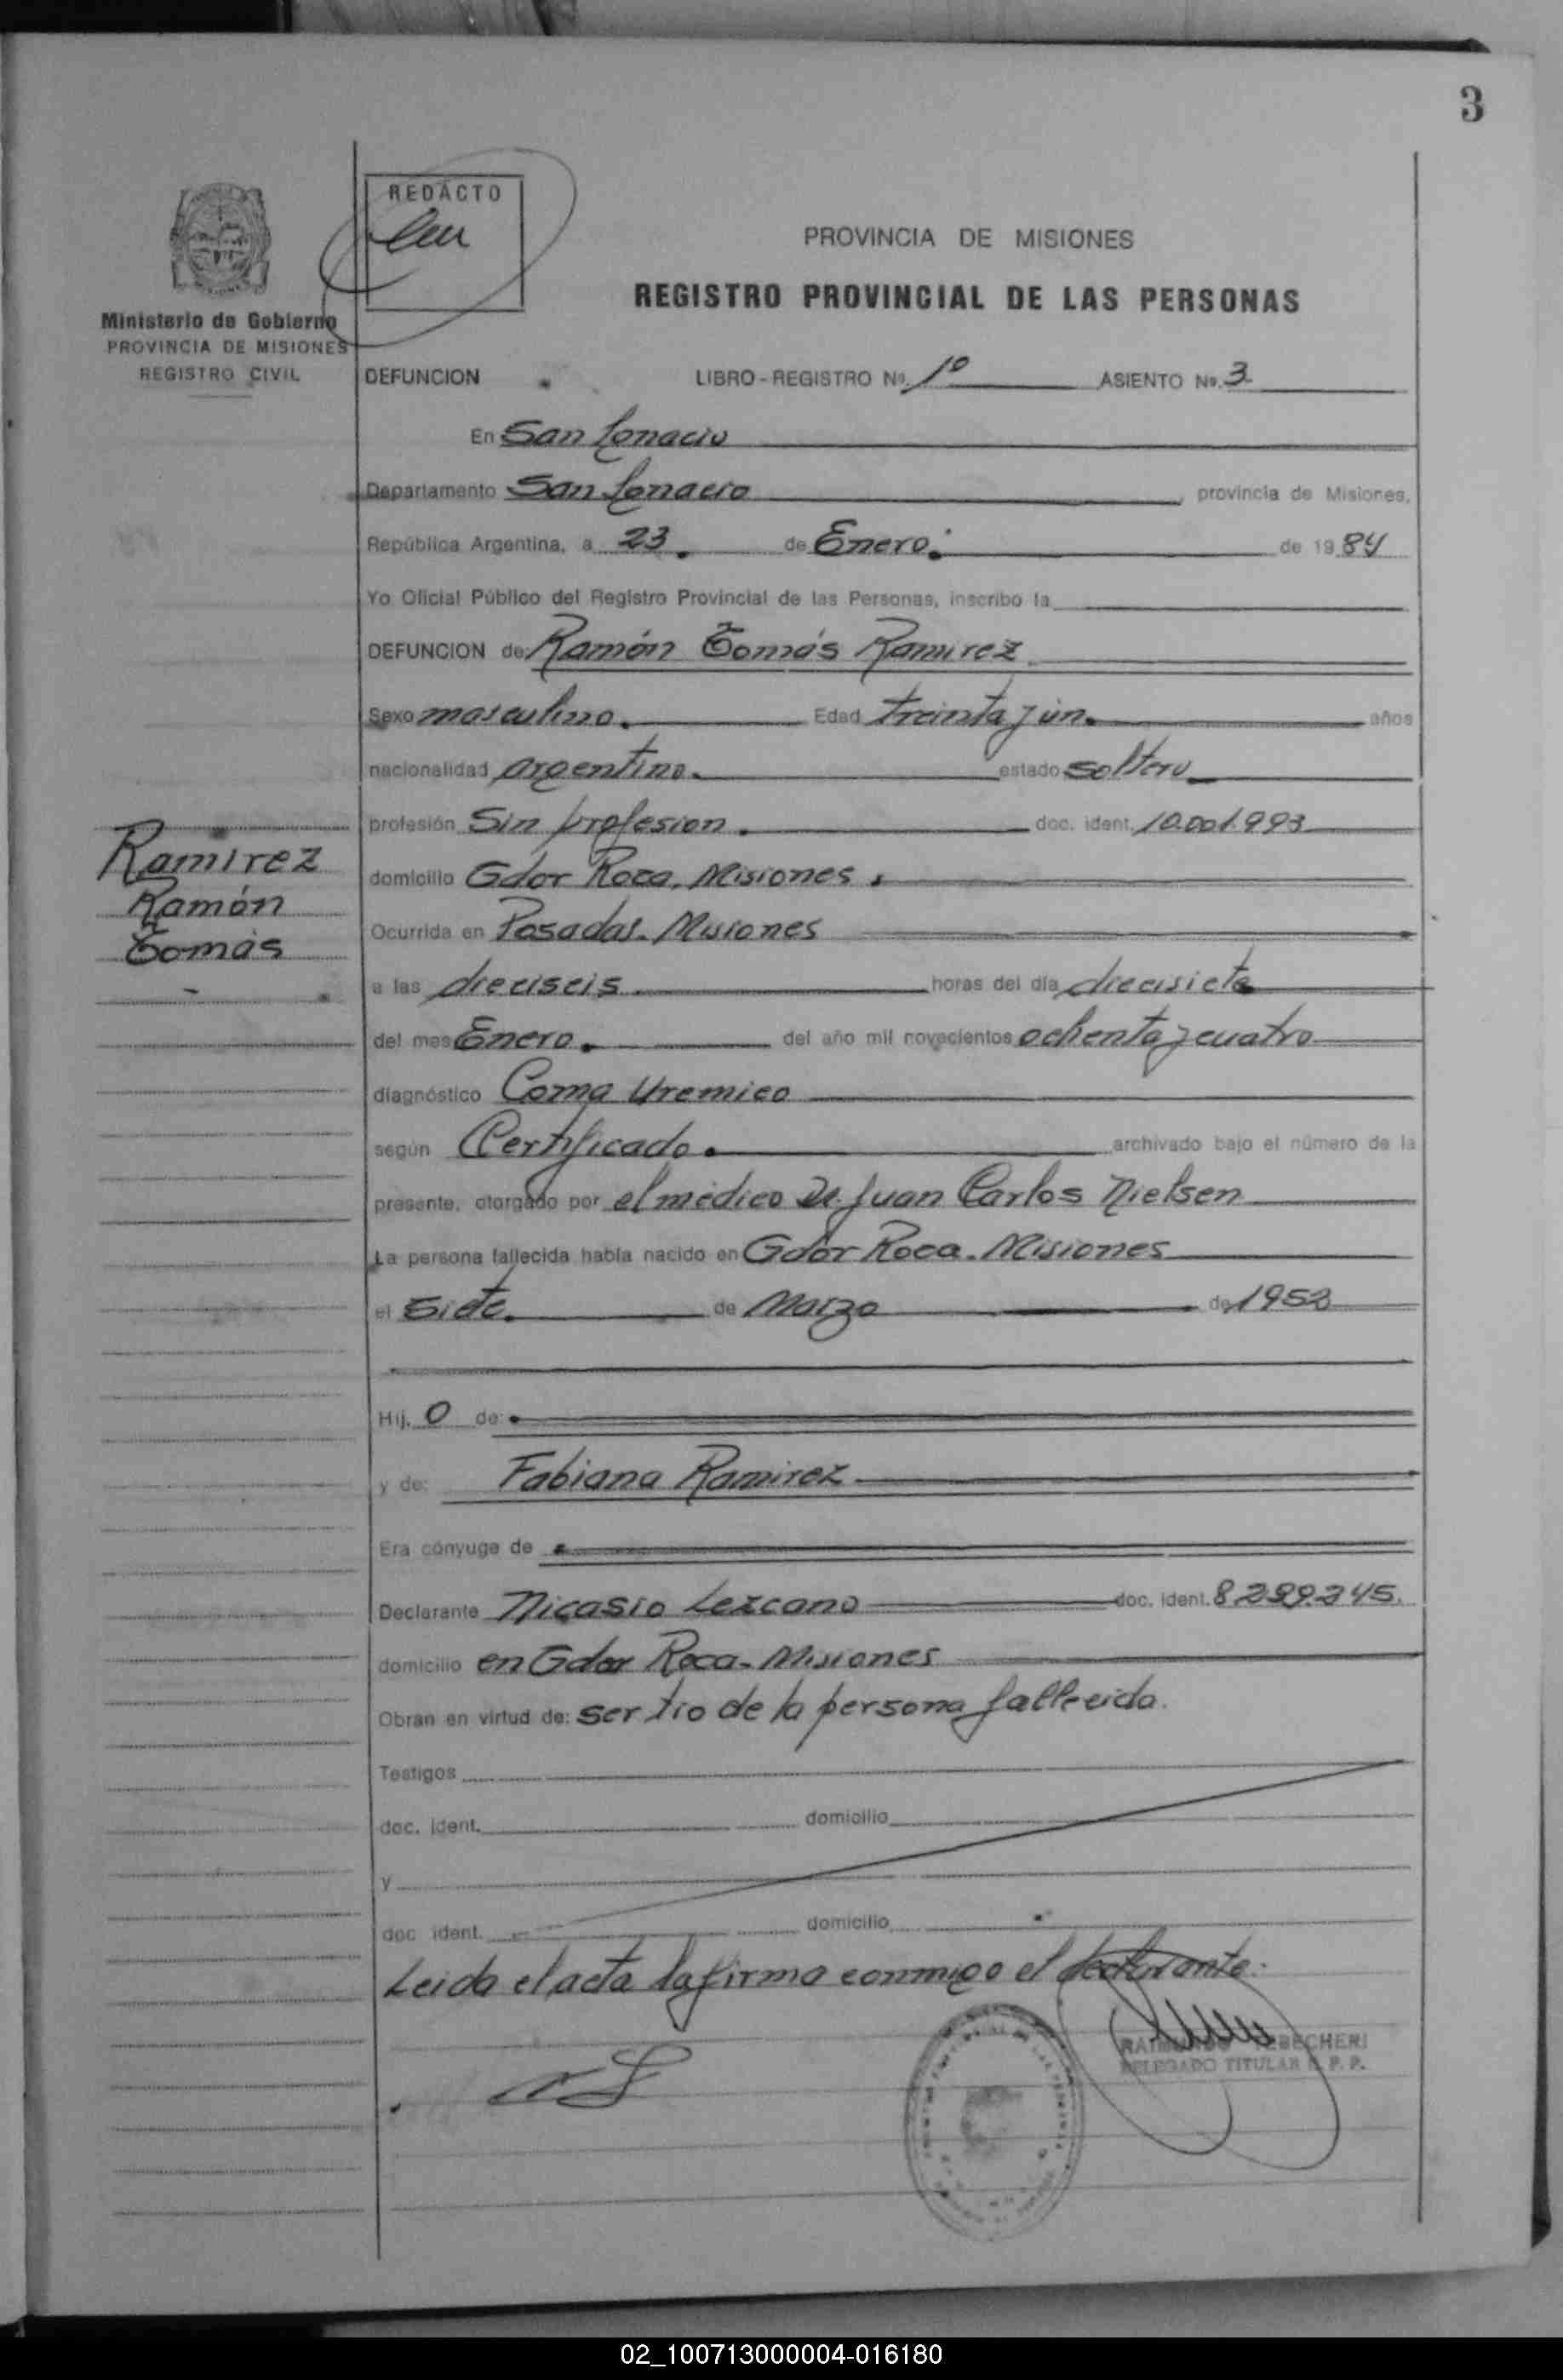 3
REDACTO
PROVINCIA DE MISIONES
REGISTRO PROVINCIAL DE LAS PERSONAS
Ministerio de Gobierno
PROVINCIA DE MISIONES
REGISTRO CIVIL
DEFUNCION LIBRO - REGISTRO Nº. 1º ASIENTO Nº. 3
En San Ignacio
Departamento San Ignacio, provincia de Misiones,
República Argentina, a 23. de Enero. de 1984
Yo Oficial Público del Registro Provincial de las Personas, inscribo la
DEFUNCION de: Ramón Tomás Ramirez
Sexo masculino. Edad treinta y un. años
nacionalidad argentino. estado soltero
profesión Sin profesion. doc. ident. 10.001.993
domicilio Gdor Roca. Misiones.
Ramirez
Ramón
Tomás
Ocurrida en Posadas. Misiones
a las dieciseis horas del día diecisiete
del mes Enero. del año mil novecientos ochenta y cuatro
diagnóstico Coma Uremico
según Certificado. archivado bajo el número de la
presente, otorgado por el médico Dr. Juan Carlos Nielsen
La persona fallecida había nacido en Gdor Roca. Misiones
el Siete. de Marzo de 1952
Hij. o de:
y de: Fabiana Ramirez
Era cónyuge de
Declarante Nicasio Lezcano doc. ident. 8.299.245.
domicilio en Gdor Roca. Misiones
Obran en virtud de: ser tio de la persona fallecida.
Testigos
doc. ident. domicilio
y
doc. ident. domicilio
Leida el acta la firma conmigo el declarante.
DELEGADO TITULAR R. P. P.
02_100713000004-016180